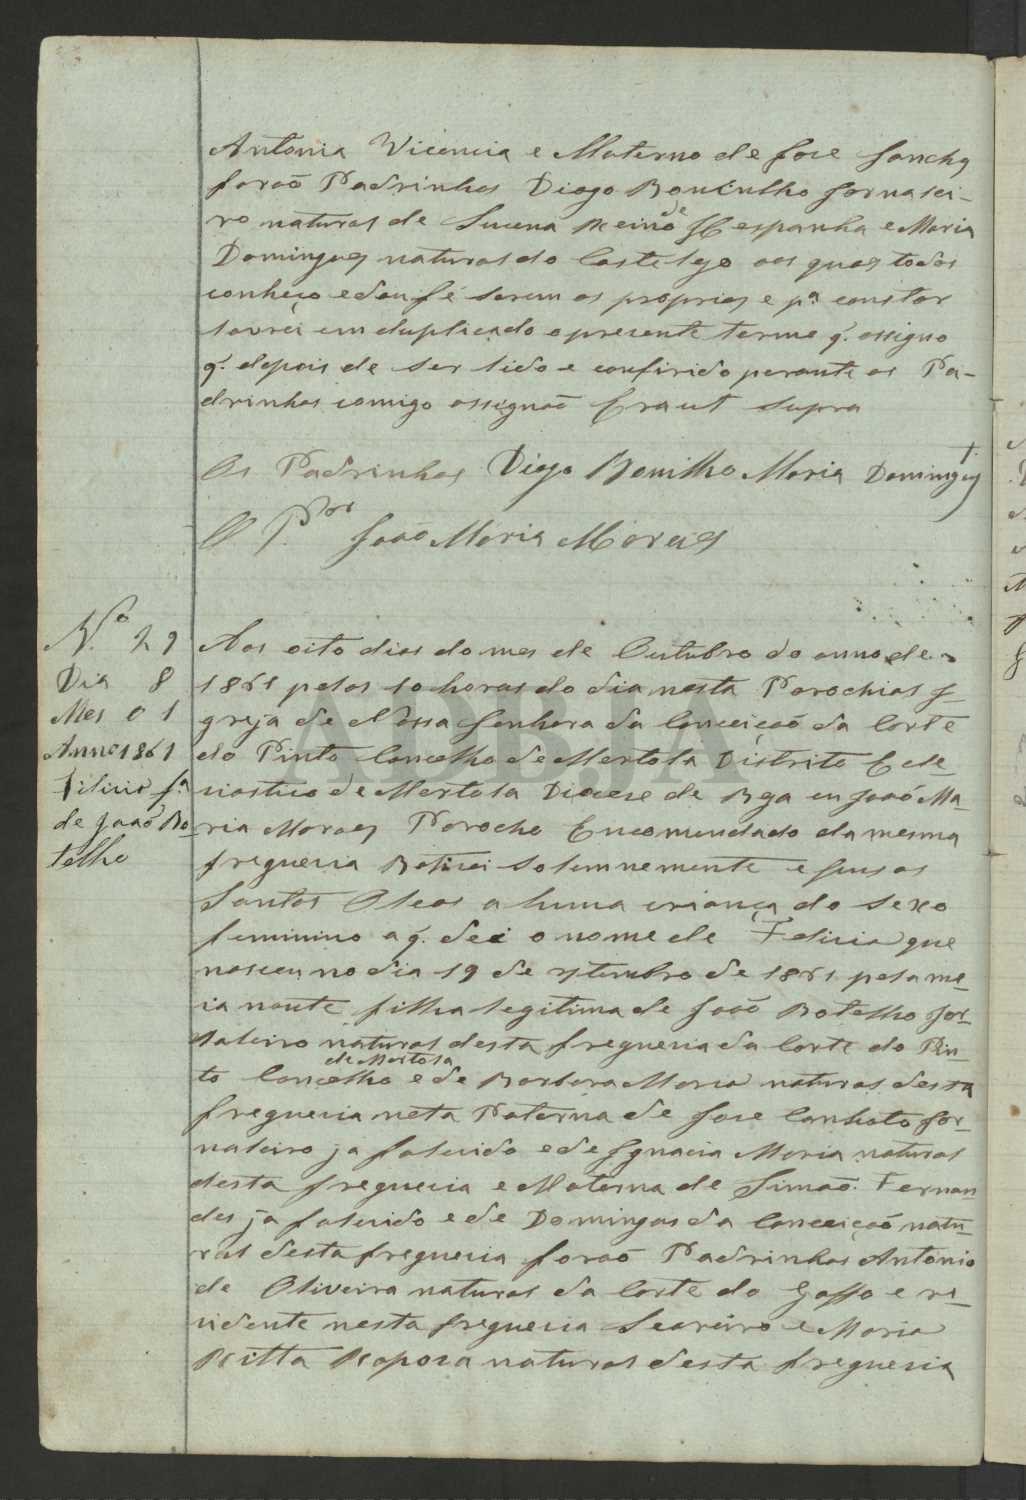 Antonia Vicencia e Materno de Jose Sanches
foraõ Padrinhos Diogo Boninlho Jornalei-
ro natural de Lucena Reino de Hespanha e Maria
Domingues natural do Castelejo aos quaes todos
conheço e dou fé serem os proprios e pª constar
lavrei em duplicado o presente termo q. assigno
q. depois de ser lido e conferido perante os Pa-
drinhos comigo assignaõ Era ut supra
Os Padrinhos Diogo Bonilho Maria + Domingues
O P.or Joaõ Maria Moraes
N.o 29
Dia 8
Mes 01
Anno 1861
Filicia fª
de Joaõ Bo-
telho
Aos oito dias do mes de Outubro do anno de
1861 pelas 10 horas do dia nesta Parochial I-
greja de Nossa Senhora da Conceiçaõ da Corte
do Pinto Concelho de Mertola Distrito Ecle-
siastico de Mertola Diocese de Bja eu Joaõ Ma-
ria Moraes Parocho Encomendado da mesma
freguesia Baticei solemnemente e pus os
Santos Oleos a huma criança do sexo
feminino a q. dei o nome de Felicia que
nasceu no dia 19 de setembro de 1861 pela me-
ia noute filha legitima de Joaõ Botelho Jor-
naleiro natural desta freguesia da Corte do Pin-
to Concelho de Mertola e de Barbora Maria natural desta
freguesia neta Paterna de Jose Canhoto Jor-
naleiro ja falecido e de Ignacia Maria natural
desta freguesia e Materna de Simaõ Fernan-
des ja falecido e de Domingas da Conceiçaõ natu-
ral desta freguesia foraõ Padrinhos Antonio
de Oliveira natural da Corte do Gaffo e re-
sidente nesta freguesia Seareiro e Maria
Ritta Raposa natural desta freguesia
ADBJA